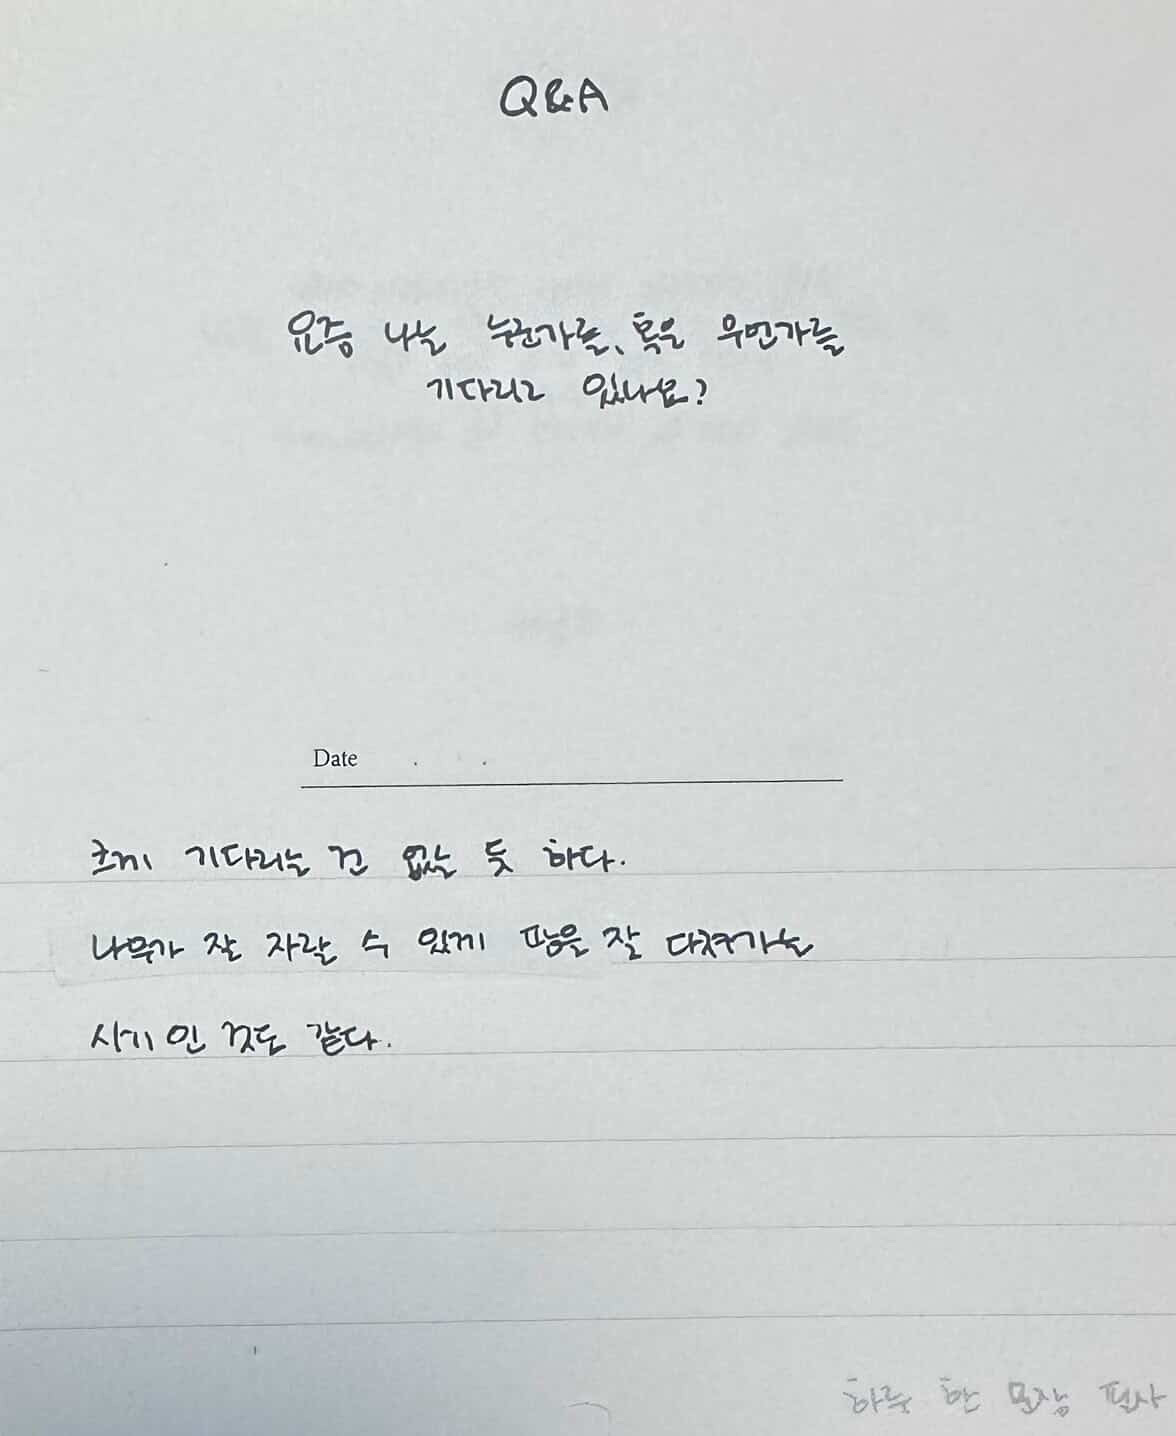 Q&A
요즘 나는 누군가를, 혹은 무언가를
기다리고 있나요?
Date . .
크게 기다리는 건 없는 듯 하다.
나무가 잘 자랄 수 있게 땅을 잘 다져가는
시기인 것도 같다.
하루 한 문장 필사